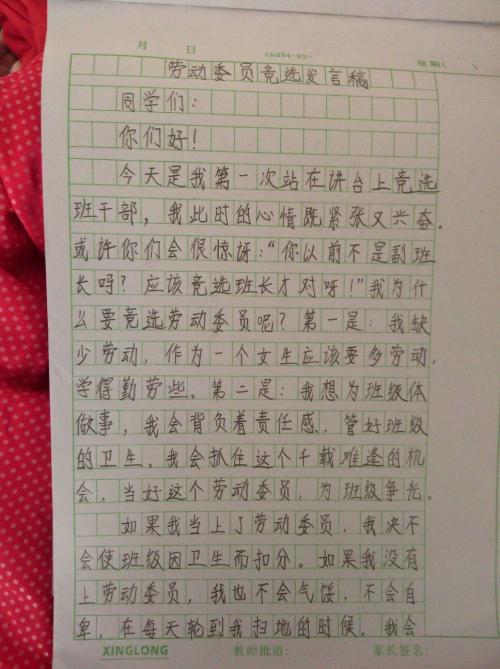 月 日 Ch054-92- 星期( )
劳动委员竞选发言稿
同学们:
你们好!
今天是我第一次站在讲台上竞选
班干部,我此时的心情既紧张又兴奋。
或许你们会很惊讶:“你以前不是副班
长吗?应该竞选班长才对呀!”我为什
么要竞选劳动委员呢?第一是:我缺
少劳动,作为一个女生应该要多劳动,
学得勤劳些。第二是:我想为班级体
做事,我会背负着责任感,管好班级
的卫生。我会抓住这个千载难逢的机
会,当好这个劳动委员,为班级争光。
如果我当上了劳动委员,我决不
会使班级因卫生而扣分。如果我没有
上劳动委员,我也不会气馁,不会自
卑,在每天轮到我扫地的时候,我会
XINGLONG 教师批语: 家长签名: